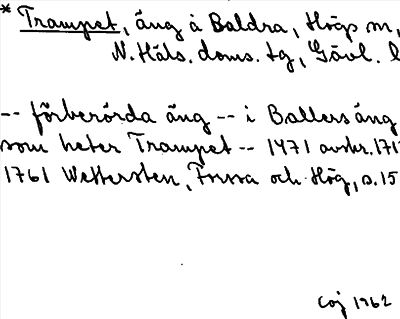 * Trampet, äng å Baldra, Högs sn,
N. Häls. doms. tg, Gävl. l
-- förberörda äng -- i Ballers äng
som heter Trampet -- 1471 avskr. 171
1761 Wettersten, Forssa och Hög, s. 15
CoJ 1962